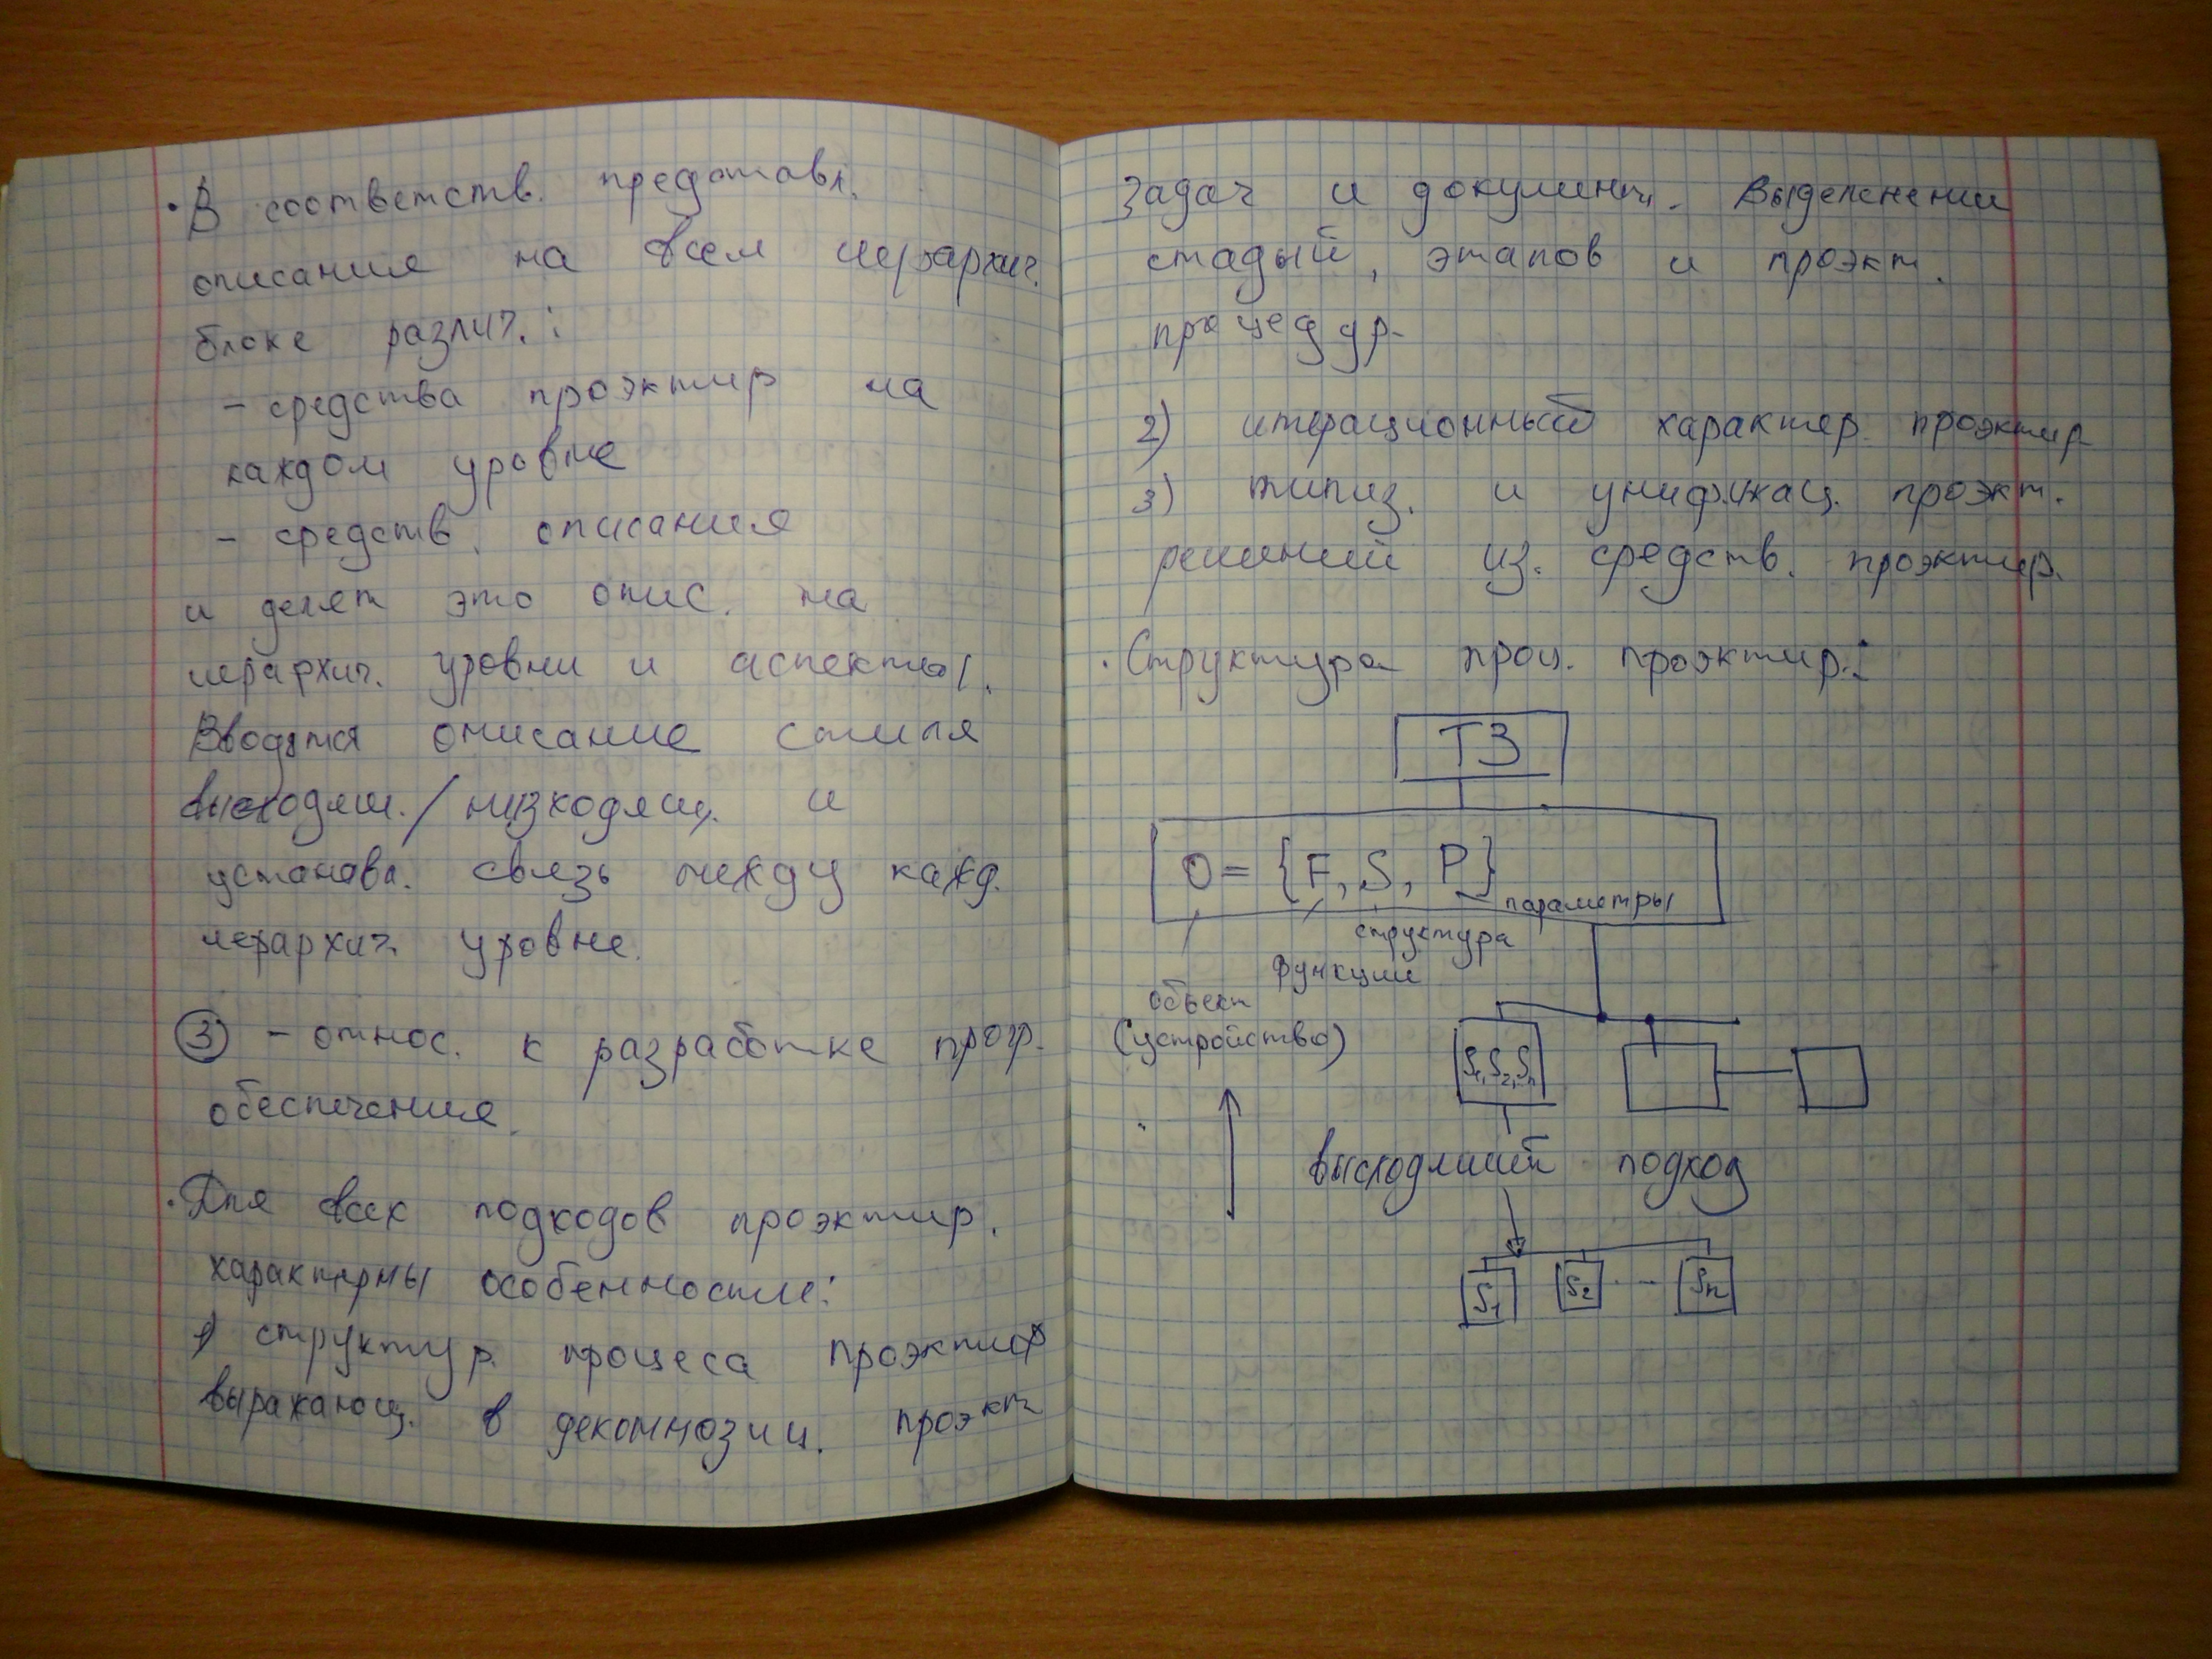 · В соответств. представл.
описания на всем иерархич.
блоке различ. :
- средства проэктир на
каждом уровне
- средств. описания
и делят это опис. на
иерархич. уровни и аспекты.
Вводятся описание стиля
высходящ. / низходящ. и
устанавл. связь между кажд.
иерархич. уровне.
③ - относ. к разработке прогр.
обеспечения.
· Для всех подходов проэктир.
характерны особенностие:
1) структур. процеса проэктир
выражающ. в декомпозиц. проэкт
задач и докуминт. Выделенении
стадый, этапов и проэкт.
процедур-
2) итерационный характер проэктир
3) типиз. и унификац. проэкт.
решиний из. средств. проэктир.
· Структура проц. проэктир.:
ТЗ
O = {F, S, P}
параметры
структура
функции
объект
(устройство)
S1, S2, Sn
высходящий подход
S1 S2 - - Sn